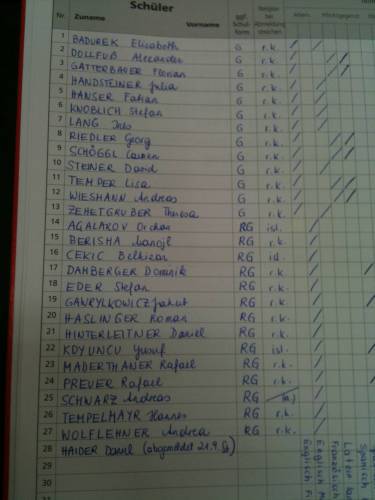 Schüler
Nr. Zuname Vorname ggf. Schulform Religion bei Abmeldung streichen
1 BADUREK Elisabeth G r.k.
2 DOLLFUß Alexander G r.k.
3 GATTERBAUER Florian G r.k.
4 HANDSTEINER Julia G r.k.
5 HANSER Fabian G r.k.
6 KNOBLICH Stefan G r.k.
7 LANG G r.k.
8 RIEDLER Georg G r.k.
9 SCHÖGGL G r.k.
10 STEINER David G r.k.
11 TEMPER Lisa G r.k.
12 WIESMANN Andreas G r.k.
13 ZEHETGRUBER Theresa G r.k.
14 AGALAKOV RG isl.
15 BERISHA RG r.k.
16 CEKIC RG isl.
17 DAMBERGER Dominik RG r.k.
18 EDER Stefan RG r.k.
19 GAWRYLKOWICZ Jakub RG r.k.
20 HASLINGER Roman RG r.k.
21 HINTERLEITNER Daniel RG r.k.
22 KOYUNCU Yusuf RG isl.
23 MADERTHANER Rafael RG r.k.
24 PREUER Rafael RG r.k.
25 SCHWARZ Andreas RG
26 TEMPELMAYR Hannes RG r.k.
27 WOLFLEHNER Andrea RG r.k.
28 HAIDER Daniel (abgemeldet 21.9.